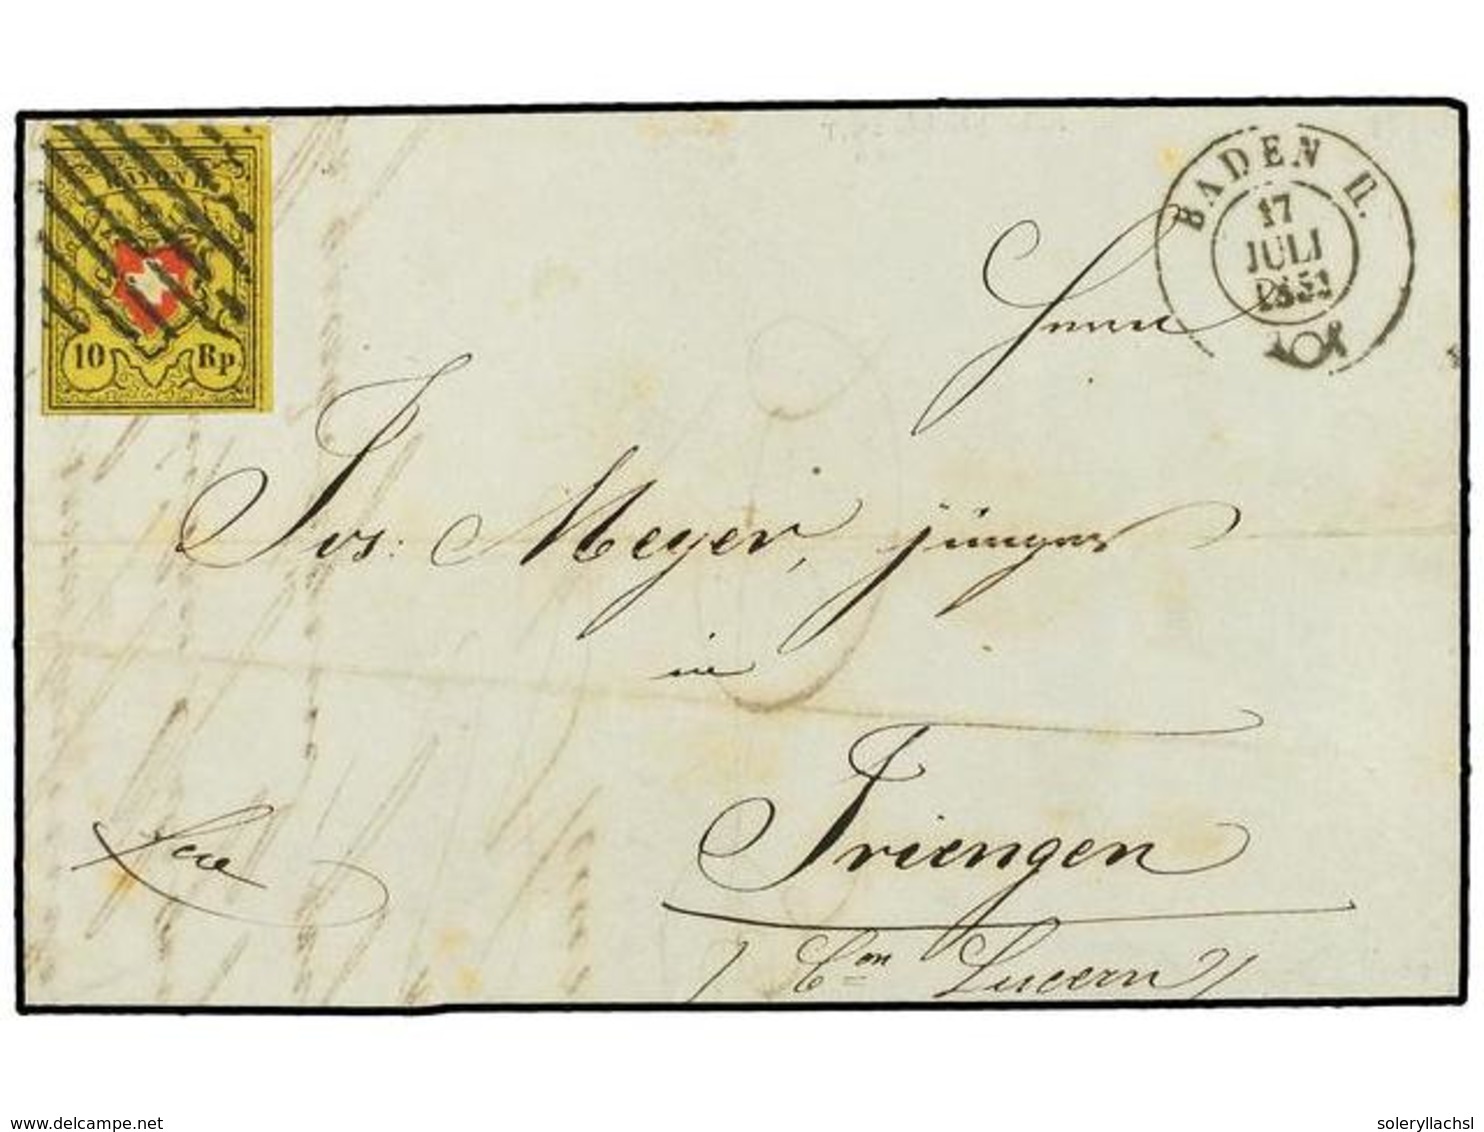 RAYON II.
10 Rp
BADEN II.
17
JULI
1851
Herrn
Jos: Meyer, jünger
in
Triengen
(Con Lucern)
www.delcampe.net
soleryllachsl